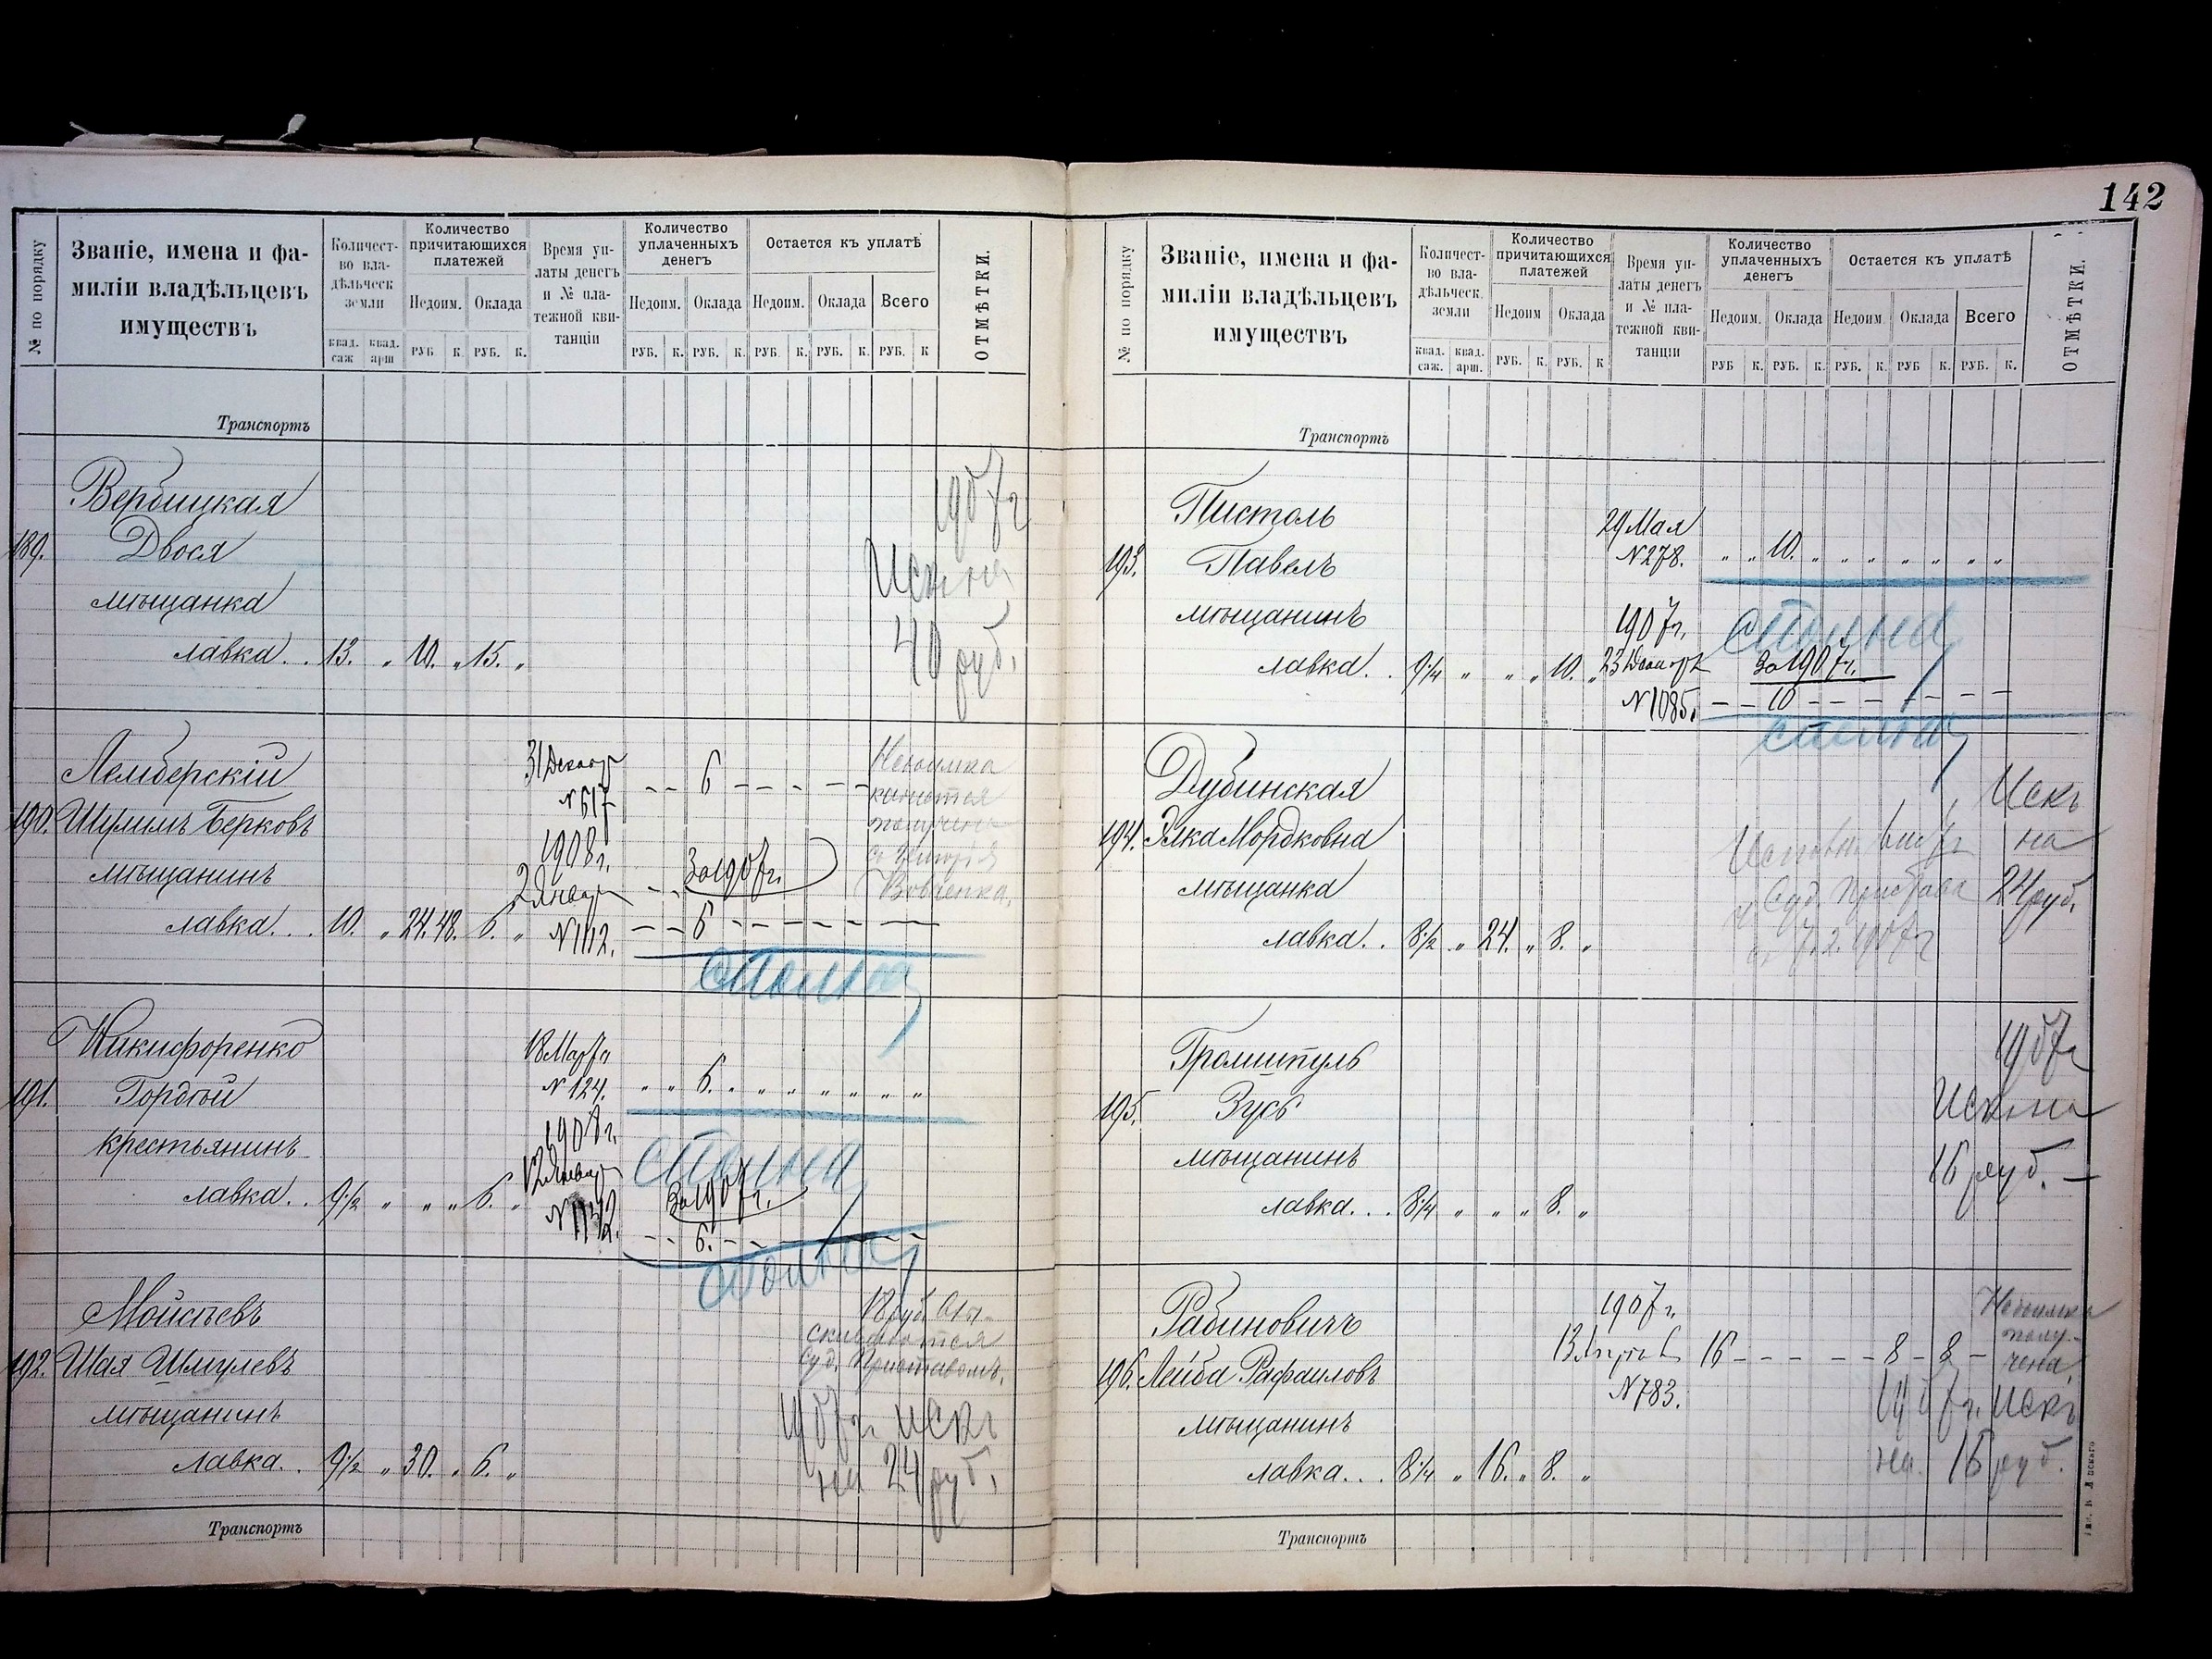 142
№ по порядку
Званіе, имена и фа-
миліи владѣльцевъ
имуществъ
Количест-
во вла-
дѣльческ
земли
квад. саж
квад. арш
Количество
причитающихся
платежей
Недоим. Оклада
РУБ К. РУБ. К.
Время уп-
латы денегъ
и № пла-
тежной кви-
танціи
Количество
уплаченныхъ
денегъ
Недоим. Оклада
РУБ. К. РУБ. К.
Остается къ уплатѣ
Недоим. Оклада Всего
РУБ. К. РУБ. К. РУБ. К
ОТМѢТКИ.
Транспортъ
Вербицкая
189. Двося
мѣщанка
лавка . . 13. „ 10. „ 15. „
1907 г
Искъ на
40 руб.
Лемберскій
190. Шулимъ Берковъ
мѣщанинъ
лавка . . . 10. „ 24. 48. 6. „
31 Декабр
№ 617 - - 6 - - - - -
1908 г.
2 Январ
За 1907 г.
№ 1112. - - 6 - - - - -
сполна
Недоимка
получена
Никифоренко
191. Гордѣй
крестьянинъ
лавка . . 9 1/2 „ „ „ 6. „
18 Марта
№ 124. „ „ 6. „ „ „ „ „ „ „
сполна
1908 г.
12 Январ
За 1907 г.
- - 6. - - - - - -
сполна
Мойсѣевъ
192. Шая Шмулевъ
мѣщанинъ
лавка . . 9 1/2 „ 30. „ 6. „
18 руб. взы-
скиваются
Суд. Приставомъ.
1907 г. Искъ
на 24 руб.
Транспортъ
№ по порядку
Званіе, имена и фа-
миліи владѣльцевъ
имуществъ
Количест-
во вла-
дѣльческ.
земли
квад. саж.
квад. арш.
Количество
причитающихся
платежей
Недоим Оклада
РУБ. К. РУБ. К
Время уп-
латы денегъ
и № пла-
тежной кви-
танціи
Количество
уплаченныхъ
денегъ
Недоим. Оклада
РУБ К. РУБ. К.
Остается къ уплатѣ
Недоим. Оклада Всего
РУБ. К. РУБ К. РУБ. К.
ОТМѢТКИ.
Транспортъ
Пистоль
193. Павелъ
мѣщанинъ
лавка . . 9 1/4 „ „ „ 10. „
29 Мая
№ 278. „ „ 10. „ „ „ „ „ „ „
1907 г. сполна
23 Декабр За 1907 г.
№ 1085. - - 10 - - - - - - -
сполна
Дубинская
194. Элка Мордковна
мѣщанка
лавка . . 8 1/2 „ 24. „ 8. „
Суд. Пристава
Искъ
на
24 руб.
Громшпуль
195. Зусь
мѣщанинъ
лавка . . . 8 1/4 „ „ „ 8. „
1907 г
Искъ на
16 руб. -
Рабиновичъ
196. Лейба Рафаиловъ
мѣщанинъ
лавка . . . 8 1/4 „ 16. „ 8. „
1907 г.
16 - - - - - 8 - 8 -
№ 783.
Недоимка
полу-
чена
1907 г. Искъ
на 16 руб.
Транспортъ